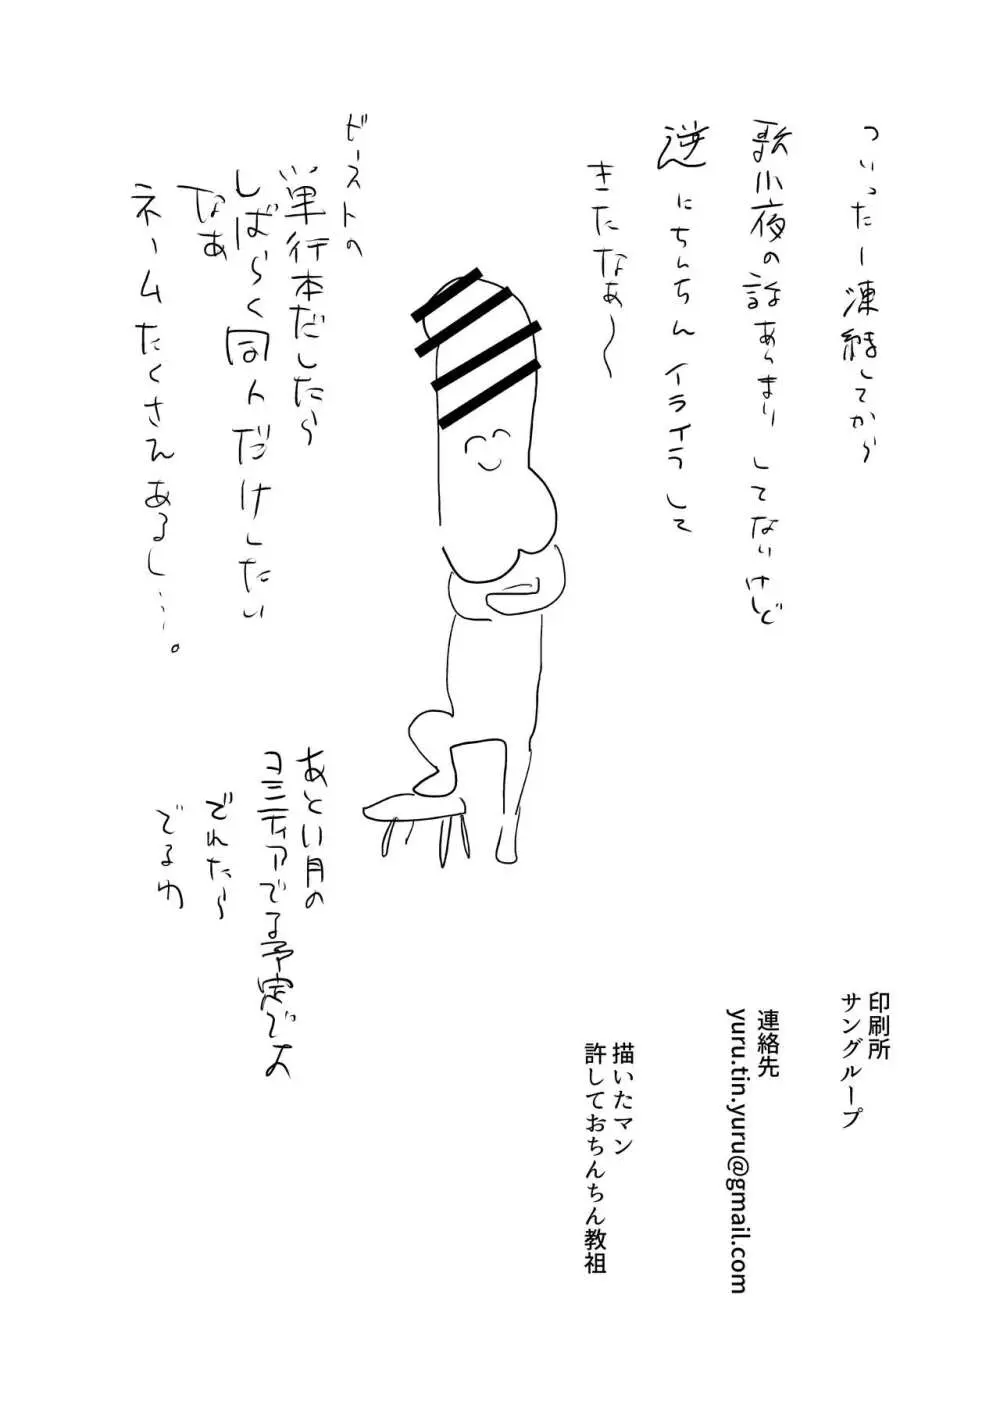 ついったー凍結してから
歌小夜の話あんまりしてないけど
逆にちんちんイライラして
きたなあ〜
ビーストの
単行本だしたら
しばらく同人だけしたい
なあ
ネームたくさんあるし…。
あと11月の
コミティアでる予定でお
でれたら
でるわ
印刷所
サングループ
連絡先
yuru.tin.yuru@gmail.com
描いたマン
許しておちんちん教祖